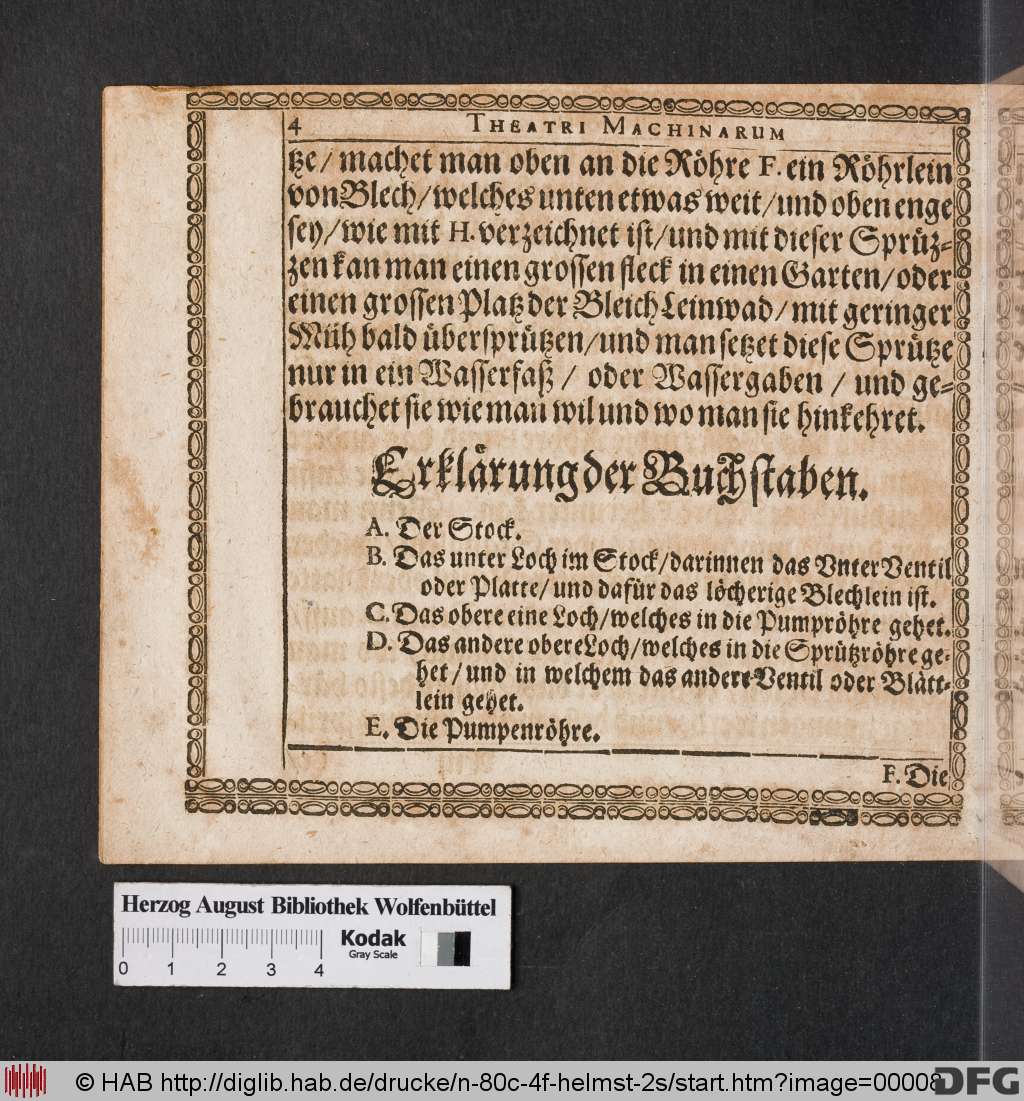 4 THEATRI MACHINARUM
tze/ machet man oben an die Röhre F. ein Röhrlein
von Blech/ welches unten etwas weit/ und oben enge
sey/ wie mit H. verzeichnet ist/ und mit dieser Sprüz-
zen kan man einen grossen fleck in einen Garten/ oder
einen grossen Platz der Bleich Leinwad/ mit geringer
Müh bald übersprützen/ und man setzet diese Sprütze
nur in ein Wasserfaß / oder Wassergaben / und ge-
brauchet sie wie man wil und wo man sie hinkehret.
Erklärung der Buchstaben.
A. Der Stock.
B. Das unter Loch im Stock/ darinnen das Vnter Ventil
oder Platte/ und dafür das löcherige Blechlein ist.
C. Das obere eine Loch/ welches in die Pumpröhre gehet.
D. Das andere obere Loch/ welches in die Sprützröhre ge-
het/ und in welchem das andere Ventil oder Blätt-
lein gehet.
E. Die Pumpenröhre.
F. Die
Herzog August Bibliothek Wolfenbüttel
0 1 2 3 4
Kodak
Gray Scale
© HAB http://diglib.hab.de/drucke/n-80c-4f-helmst-2s/start.htm?image=00008
DFG